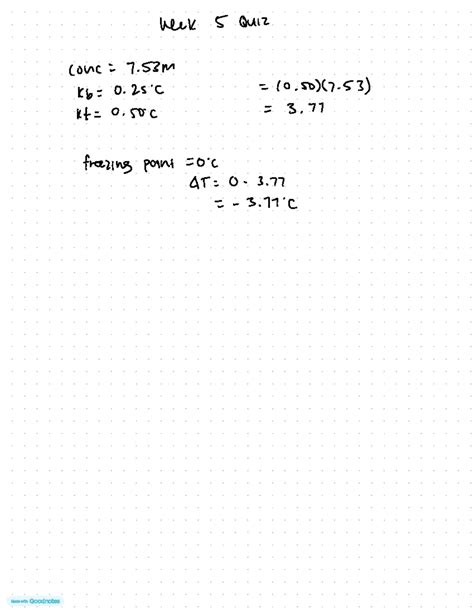 Week 5 Quiz
conc = 7.53m
Kb = 0.25°C
Kf = 0.50°C
= (0.50)(7.53)
= 3.77
freezing point = 0°C
ΔT = 0 - 3.77
= - 3.77°C
Made with Goodnotes